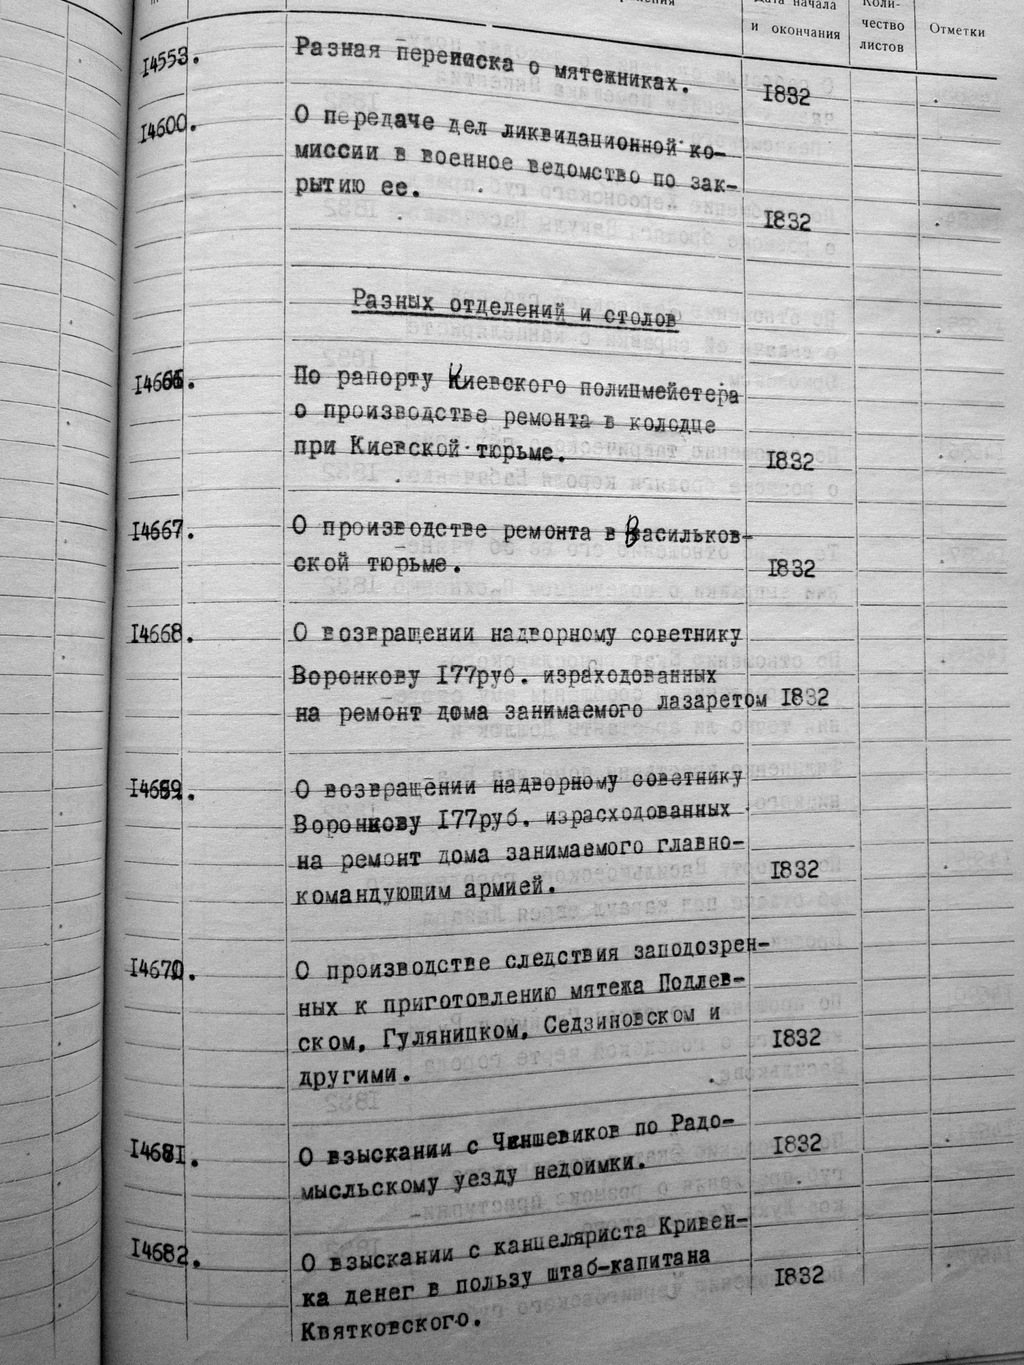 Дата начала
и окончания
Коли-
чество
листов
Отметки
14553. Разная переписка о мятежниках. 1832
14600. О передаче дел ликвидационной ко-
миссии в военное ведомство по зак-
рытию ее. 1832
Разных отделений и столов
14666. По рапорту Киевского полицмейстера
о производстве ремонта в колодце
при Киевской тюрьме. 1832
14667. О производстве ремонта в Васильков-
ской тюрьме. 1832
14668. О возвращении надворному советнику
Воронкову 177руб. израсходованных
на ремонт дома занимаемого лазаретом 1832
14669. О возвращении надворному советнику
Воронкову 177руб. израсходованных
на ремонт дома занимаемого главно-
командующим армией. 1832
14670. О производстве следствия заподозрен-
ных к приготовлению мятежа Подлев-
ском, Гуляницком, Седзиновском и
другими. 1832
14681. О взыскании с Чиншевиков по Радо-
мысльскому уезду недоимки. 1832
14682. О взыскании с канцеляриста Кривен-
ка денег в пользу штаб-капитана
Квятковского. 1832